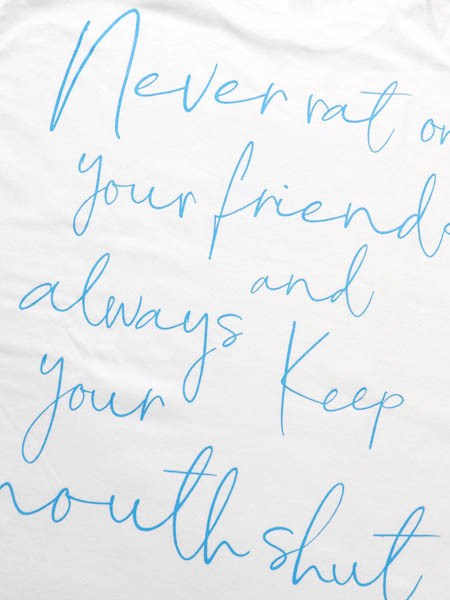 Never rat on
your friends
and
always Keep
your
mouth shut